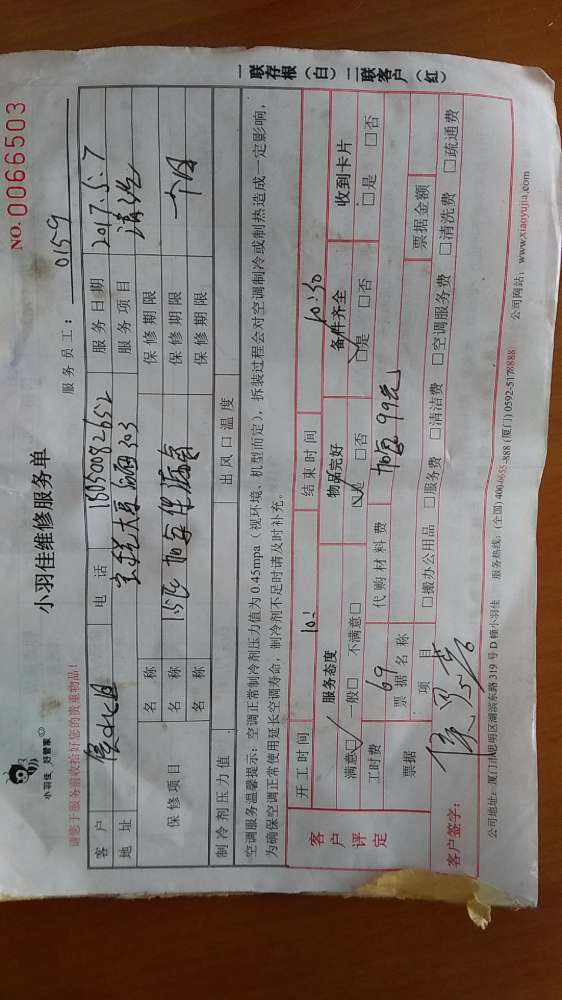 小羽佳 好管家
小羽佳维修服务单
NO. 0066503
请您于服务前收拾好您的贵重物品!
服务员工: 0159
客户 电话 15150082652 服务日期 2017.5.7
地址 303 服务项目 清洗
保修项目 名称 保修期限
名称 1.5匹 加氟 保修期限 一个月
名称 保修期限
制冷剂压力值 出风口温度
空调服务温馨提示:空调正常制冷剂压力值为0.45mpa(视环境、机型而定),拆装过程会对空调制冷或制热造成一定影响,
为确保空调正常使用延长空调寿命,制冷剂不足时请及时补充。
开工时间 10: 结束时间 10:30
客户评定 服务态度 物品完好 备件齐全 收到卡片
满意□ 一般□ 不满意□ □是 □否 □是 □否 □是 □否
工时费 69 代购材料费 加氟99元
票据 票据名称 票据金额
项目 □搬办公用品 □服务费 □清洁费 □空调服务费 □清洗费 □疏通费
客户签字:
公司地址:厦门市思明区湖滨东路319号D幢小羽佳 服务热线:(全国)4006655-888 (厦门)0592-5178888 公司网站:www.xiaoyujia.com
一联存根(白)二联客户(红)